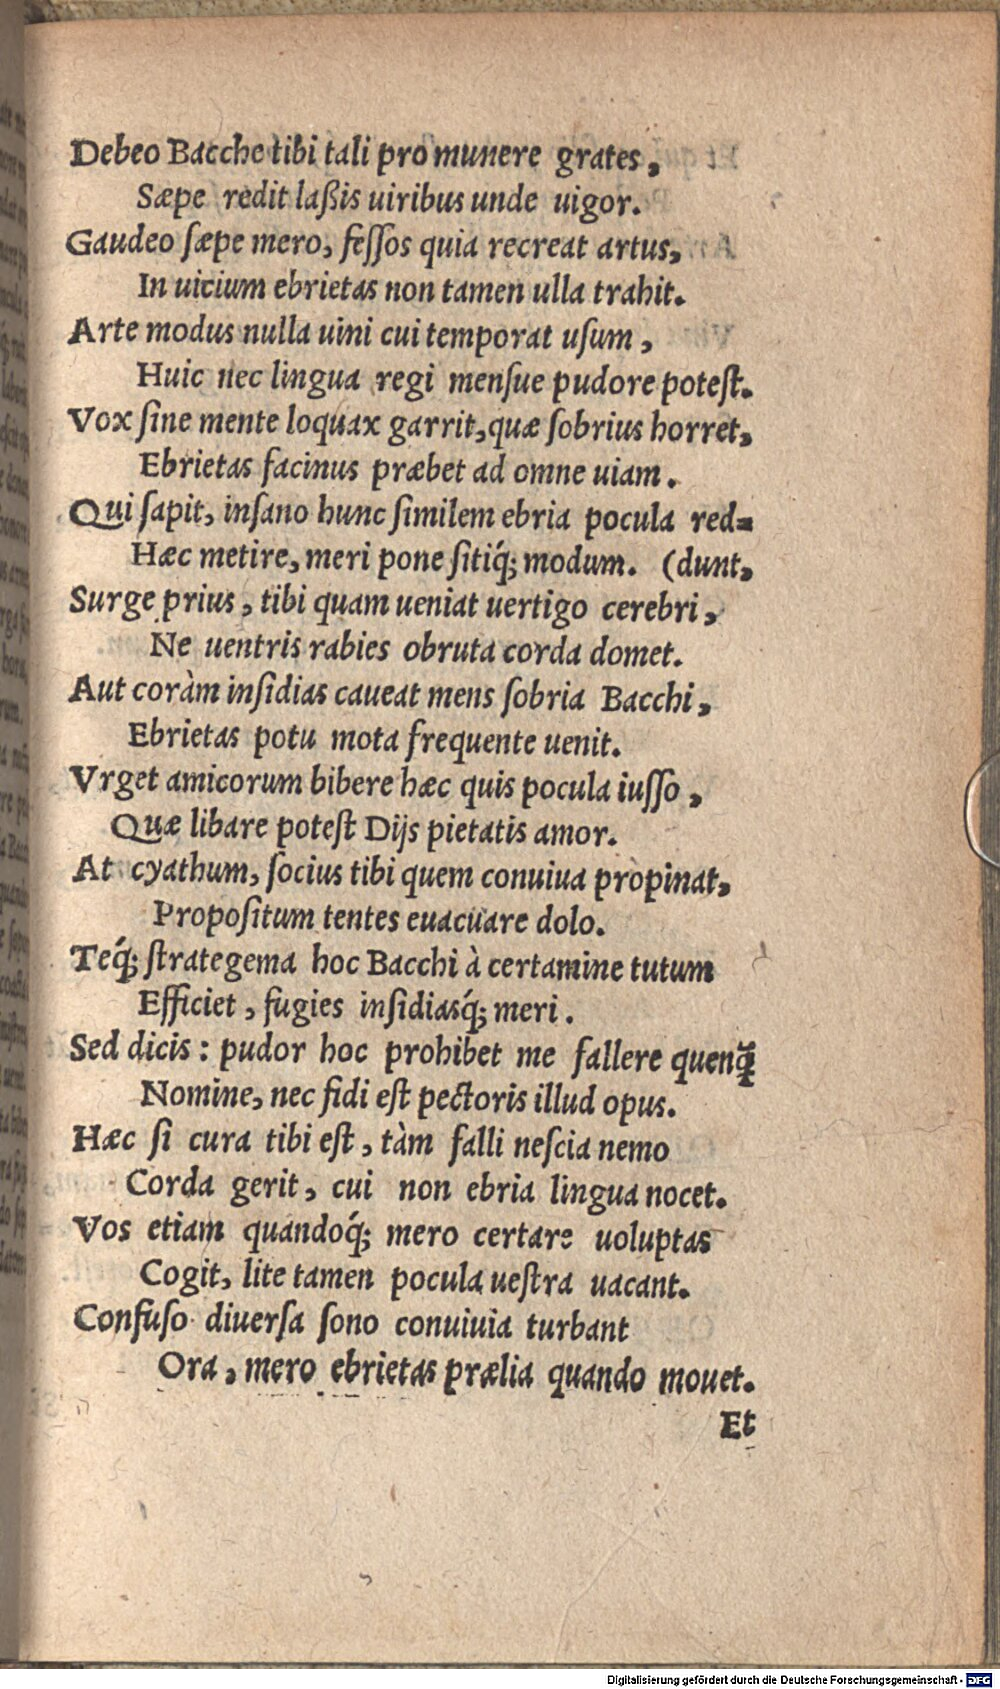 Debeo Bacche tibi tali pro munere grates,
Sæpe redit laßis uiribus unde uigor.
Gaudeo ſæpe mero, feſſos quia recreat artus,
In uicium ebrietas non tamen ulla trahit.
Arte modus nulla uini cui temporat uſum,
Huic nec lingua regi menſue pudore poteſt.
Vox ſine mente loquax garrit, quæ ſobrius horret,
Ebrietas facinus præbet ad omne uiam.
Qui ſapit, inſano hunc ſimilem ebria pocula red=
Hæc metire, meri pone ſitiq́; modum. (dunt,
Surge prius, tibi quam ueniat uertigo cerebri,
Ne uentris rabies obruta corda domet.
Aut coràm inſidias caueat mens ſobria Bacchi,
Ebrietas potu mota frequente uenit.
Vrget amicorum bibere hæc quis pocula iuſſo,
Quæ libare poteſt Dijs pietatis amor.
At cyathum, ſocius tibi quem conuiua propinat,
Propoſitum tentes euacuare dolo.
Teq́; ſtrategema hoc Bacchi à certamine tutum
Efficiet, fugies inſidiasq́; meri.
Sed dicis: pudor hoc prohibet me fallere quenꝗ̃
Nomine, nec fidi eſt pectoris illud opus.
Hæc ſi cura tibi eſt, tàm falli neſcia nemo
Corda gerit, cui non ebria lingua nocet.
Vos etiam quandoq́; mero certare uoluptas
Cogit, lite tamen pocula ueſtra uacant.
Confuſo diuerſa ſono conuiuia turbant
Ora, mero ebrietas prælia quando mouet.
Et
Digitalisierung gefördert durch die Deutsche Forschungsgemeinschaft - DFG